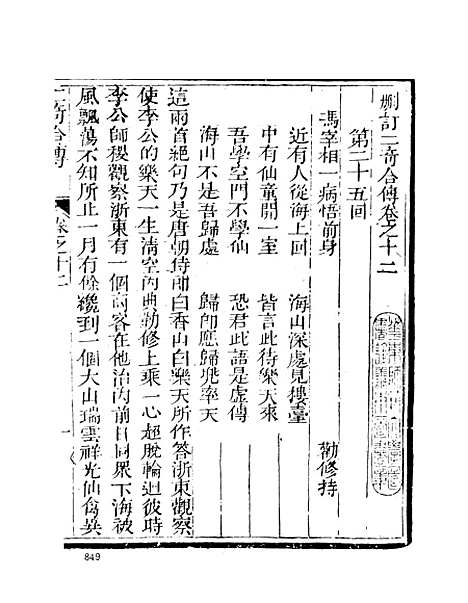 刪訂二奇合傳卷之十二
第二十五回
馮宰相一病悟前身　勸修持
近有人從海上回　海山深處見樓臺
中有仙童開一室　皆言此待樂天來
吾學空門不學仙　恐君此語是虛傳
海山不是吾歸處　歸即應歸兜率天
這兩首絕句乃是唐朝侍郎白香山白樂天所作答浙東觀察
使李公的樂天一生淸空內典勤修上乘一心超脫輪迴彼時
李公師稷觀察浙東有一個商客在他治內前日同眾下海被
風飄蕩不知所止一月有餘纔到一個大山瑞雲祥光仙禽異
二奇合傳　卷之十二　一
849